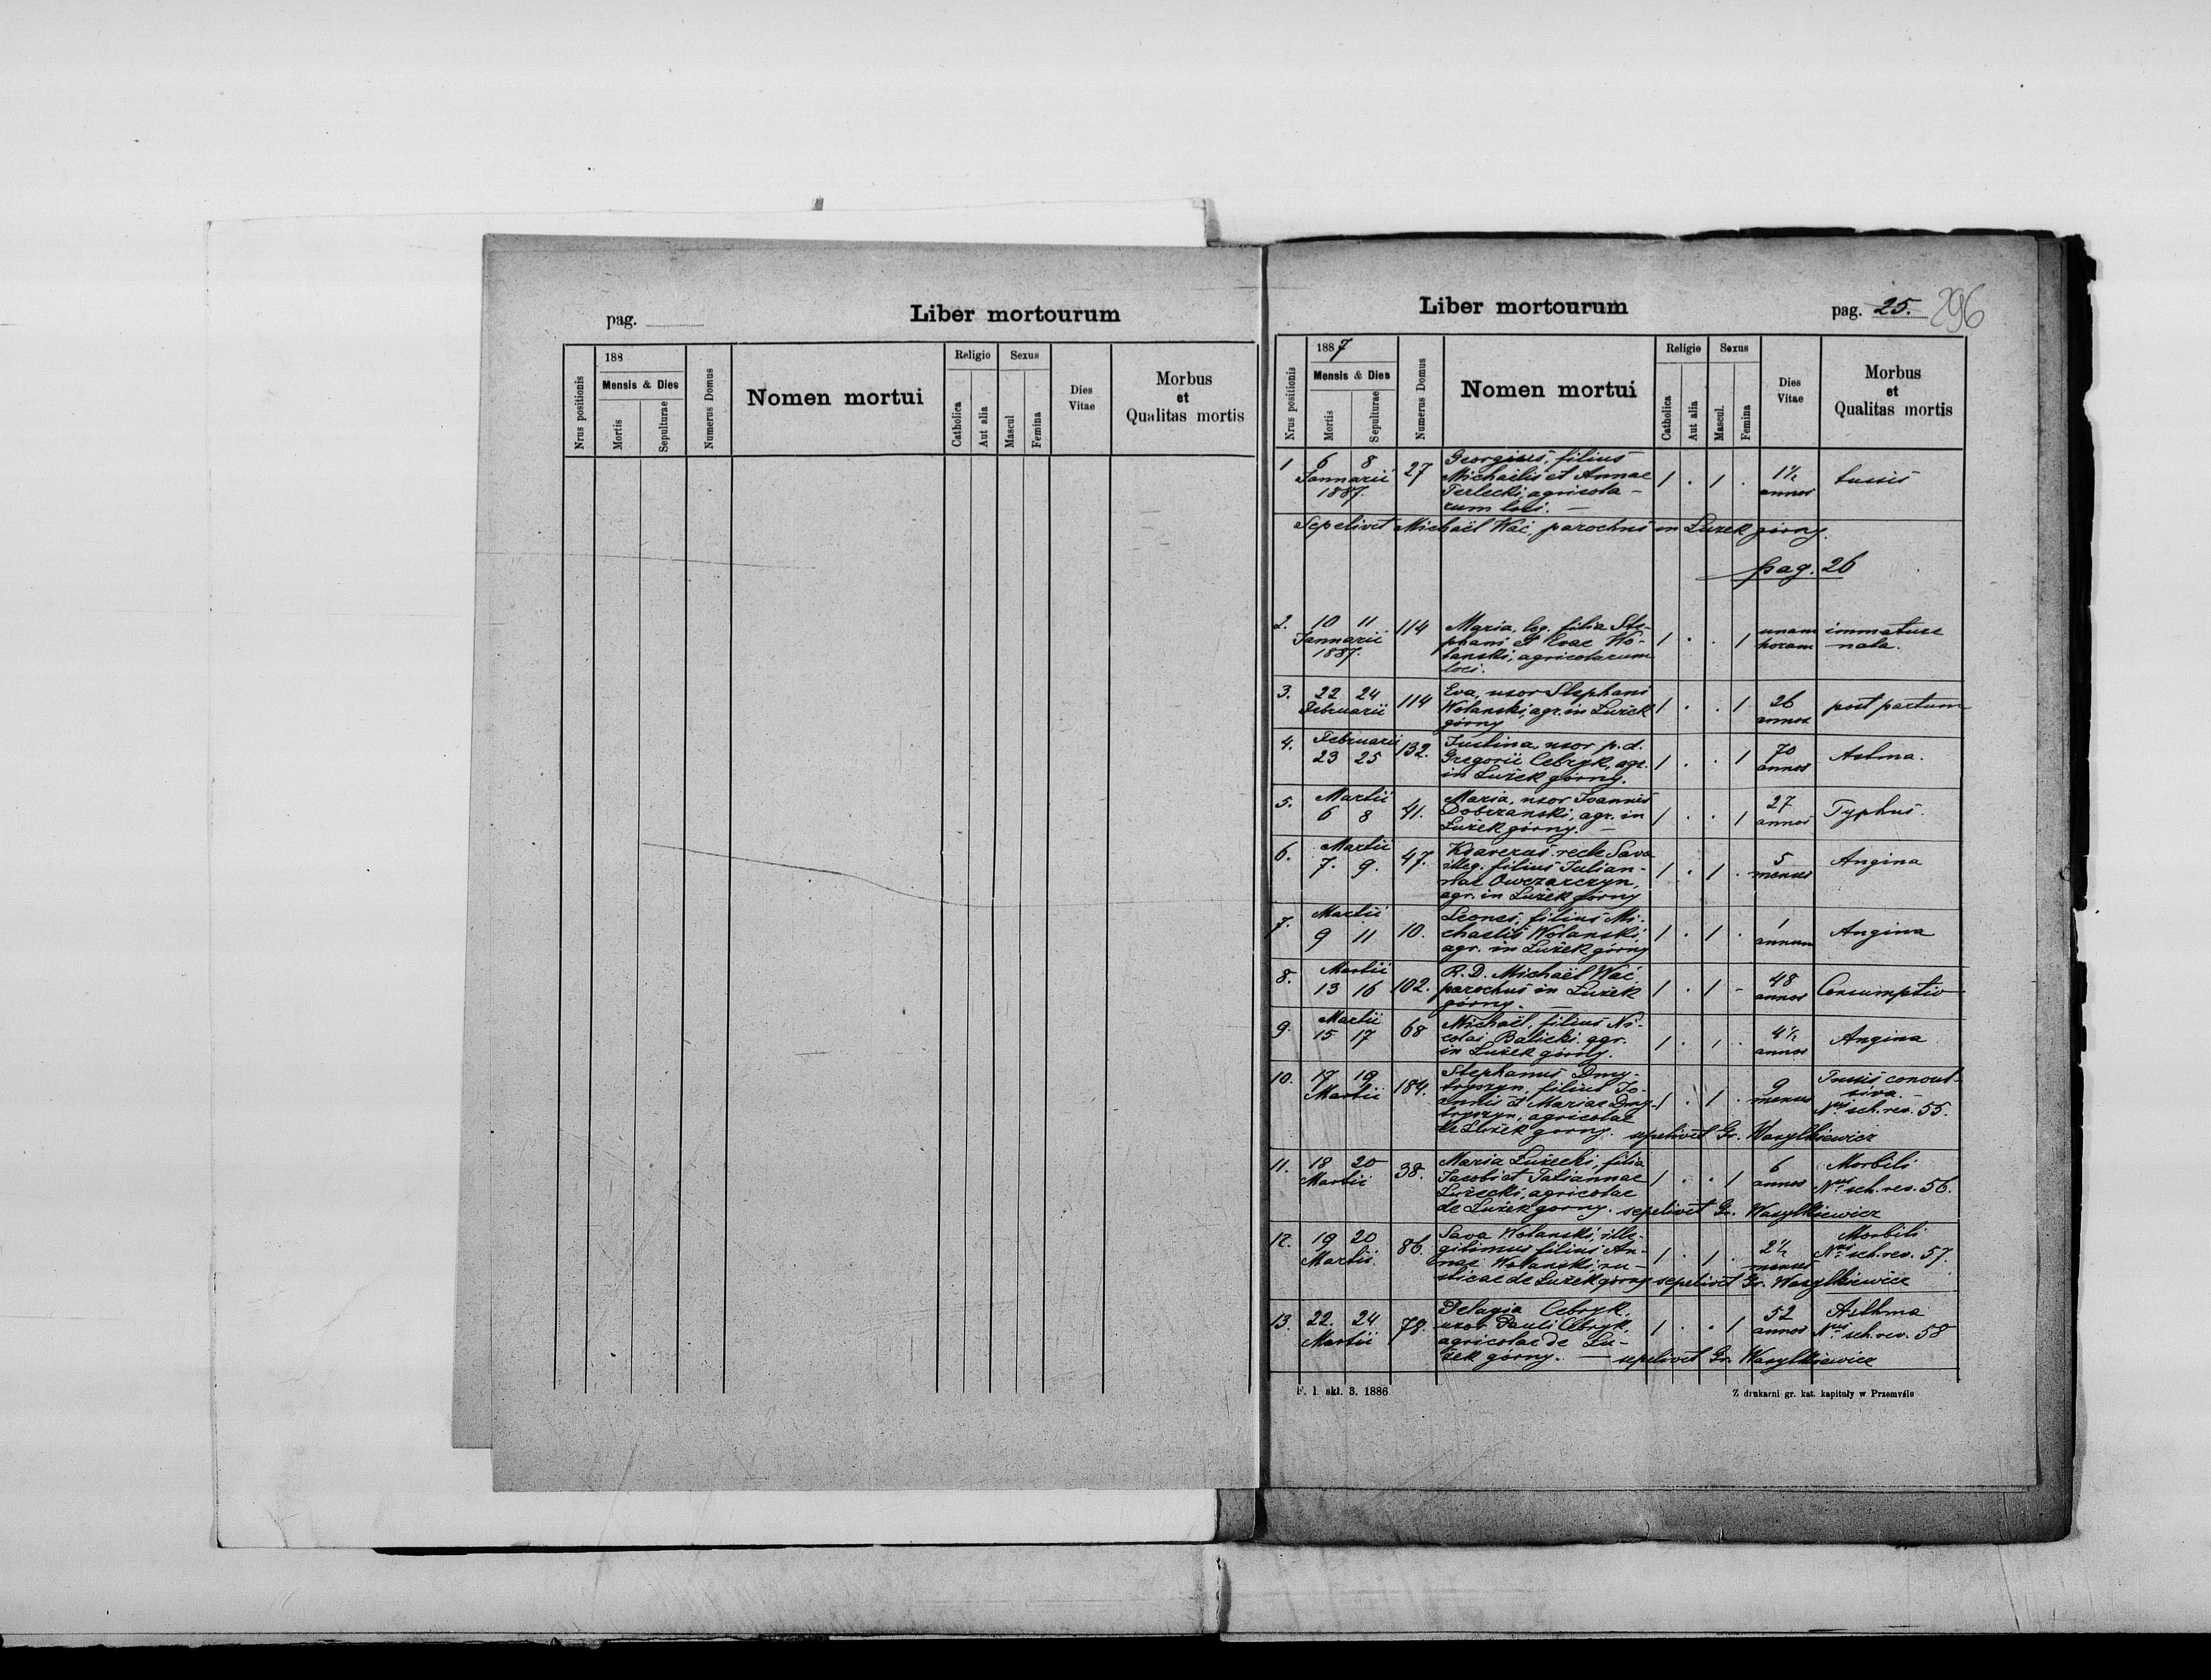 pag.
Liber mortourum
Nrus positionis
188
Mensis & Dies
Mortis
Sepulturae
Numerus Domus
Nomen mortui
Religio
Catholica
Aut alia
Sexus
Mascul
Femina
Dies
Vitae
Morbus
et
Qualitas mortis
Liber mortourum
pag. 25.
296
Nrus positionis
1887
Mensis & Dies
Mortis
Sepulturae
Numerus Domus
Nomen mortui
Religio
Catholica
Aut alia
Sexus
Mascul.
Femina
Dies
Vitae
Morbus
et
Qualitas mortis
1 6 8 27 Georgius, filius
Januarii Michaëlis et Annae 1 . 1 . 1½ tussis
1887. Terlecki, agricola- annos
rum loci. —
Sepelivit Michaël Wać, parochus in Łużek górny.
pag. 26
2. 10 11 114 Maria, leg. filia Ste-
Januarii phani et Evae Wo- 1 . . 1 unam immature
1887. lanski, agricolarum horam nata.
loci.
3. 22 24 114 Eva, uxor Stephani
Februarii Wolanski, agr. in Łużek 1 . . 1 26 post partum
górny annos
4. Februarii 132. Justina, uxor p. d.
23 25 Gregorii Cebryk, agr. 1 . . 1 70 Astma.
in Łużek górny. annos
5. Martii 41. Maria, uxor Joannis
6 8 Dobrzanski, agr. in 1 . . 1 27 Typhus.
Łużek górny. — annos
6. Martii 47. Ksaverus recte Sava
7. 9. illeg. filius Julian- 1 . 1 . 5 Angina
nae Owczarczyn, menses
agr. in Łużek górny
7. Martii 10. Leones, filius Mi-
9 11 chaelis Wolanski, 1 . 1 . 1 Angina
agr. in Łużek górny annum
8. Martii 102. R. D. Michaël Wać
13 16 parochus in Łużek 1 . 1 - 48 Consumptio
górny. annos
9. Martii 68 Michaël, filius Ni-
15 17 colai Balicki, agr. 1 . 1 . 4½ Angina
in Łużek górny. annos
10. 17 19 184. Stephanus Dmy-
Martii tryszyn, filius Jo- 1 . 1 . 9 Tussis convul-
annis et Mariae Dmy- menses siva. —
tryszyn, agricolae Nus sch. rev. 55.
de Łużek gorny. sepelivit Gr. Wasylkiewicz
11. 18 20 38. Maria Łużecki, filia
Martii Jacobi et Tatiannae 1 . . 1 6 Morbili
Łużecki, agricolae annos Nus sch. rev. 56.
de Łużek gorny. sepelivit Gr. Wasylkiewicz
12. 19 20 86. Sava Wolanski, ille-
Martii gitimus filius An- 1 . 1 . 2½ Morbili
nae Wolanski, ru- menses Nus sch. rev. 57.
sticae de Łużek gorny sepelivit Gr. Wasylkiewicz
13. 22. 24 78. Pelagia Cebryk,
Martii uxor Pauli Cebryk, 1 . . 1 52 Asthma
agricolae de Łu- annos Nus sch. rev. 58
żek górny. — sepelivit Gr. Wasylkiewicz
F. l. skł. 3. 1886
Z drukarni gr. kat. kapituły w Przemyślu